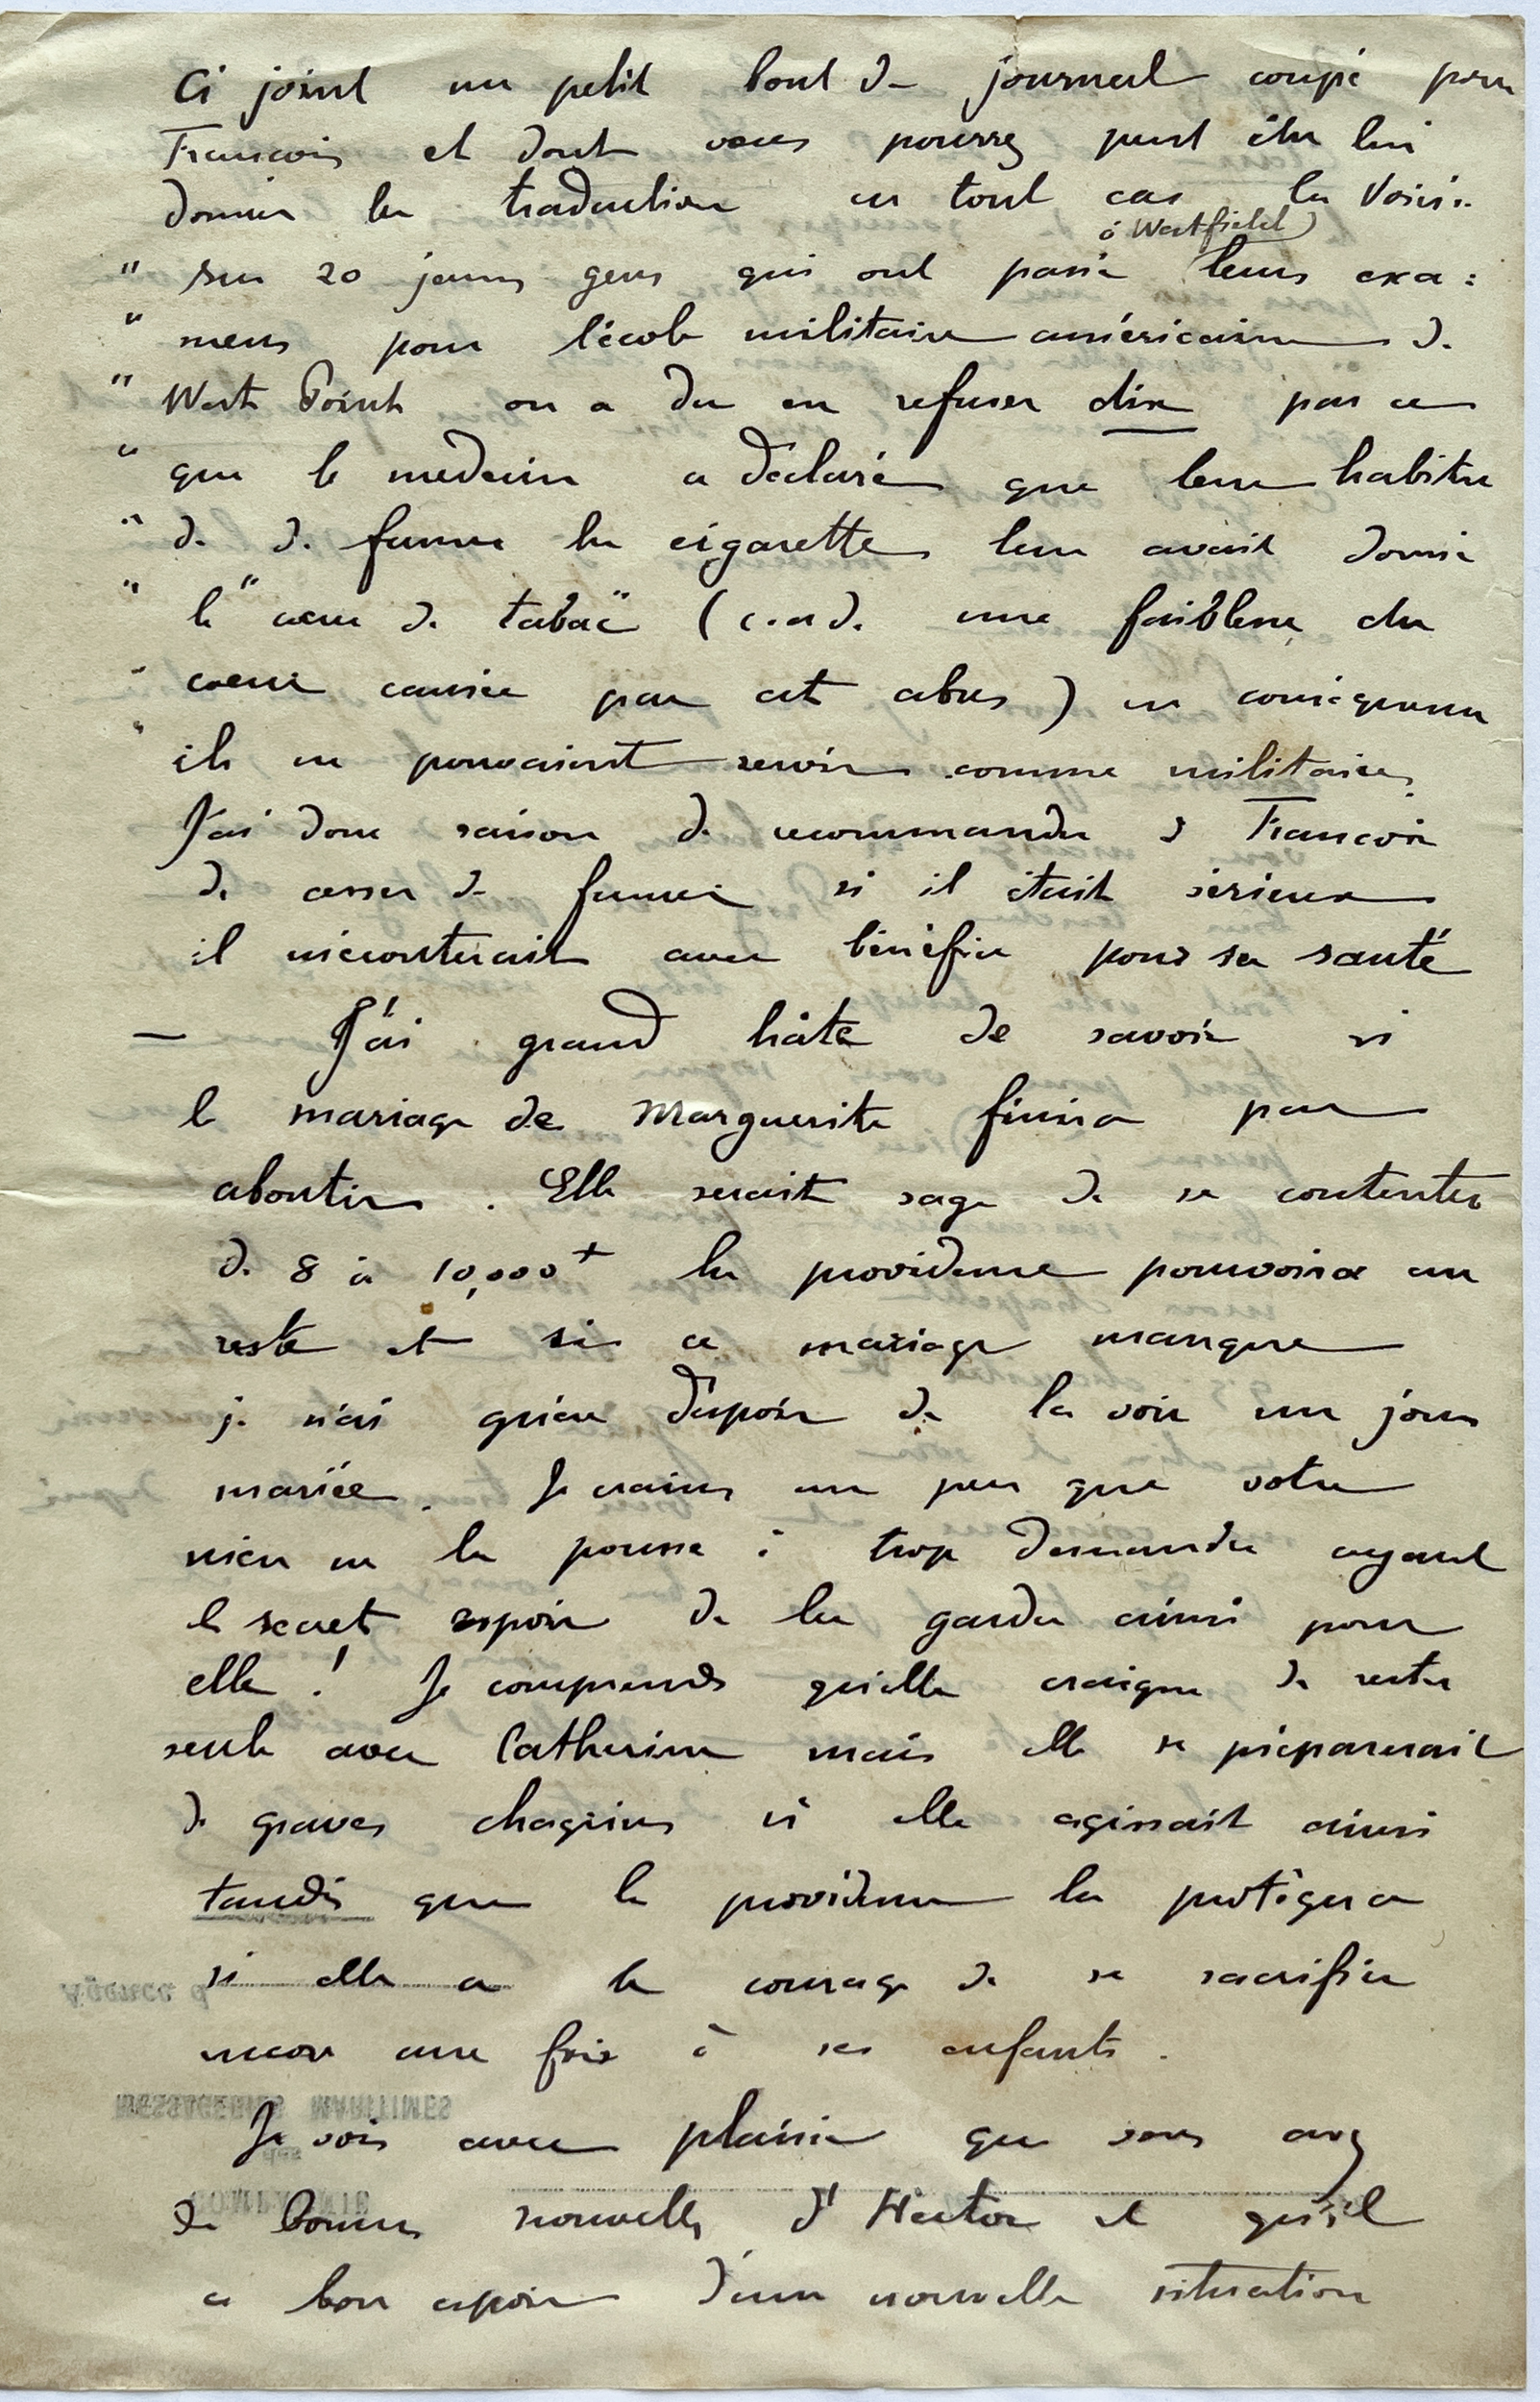 Ci joint un petit bout de journal coupé pour
Francois et dont vous pourrez peut être lui
donner la traduction en tout cas la voici:
à Westfield)
" Sur 20 jeunes gens qui ont passé leurs exa:
" mens pour l'école militaire américaine de
" West Point on a du en refuser dix par ce
" que le medecin a déclaré que leur habitu
" de de fumer la cigarette leur avait donné
" le "coeur de tabac" (c.a d. une faiblesse du
" coeur causée par cet abus) en conséquence
" ils ne pouvaient servir comme militaires.
J'ai donc raison de recommander à Francois
de cesser de fumer si il était sérieux
il m'écouterait avec bénéfice pour sa santé
— J'ai grand hâte de savoir si
le mariage de Marguerite finira par
aboutir. Elle serait sage de se contenter
de 8 à 10,000 + la providence pourvoira au
reste et si ce mariage manque
je n'ai guère d'espoir de la voir un jour
mariée. Je crains un peu que votre
nièce ne la pousse à trop demander ayant
le secret espoir de la garder ainsi pour
elle! Je comprends qu'elle craigne de rester
seule avec Catherine mais elle se préparerait
de graves chagrins si elle agissait ainsi
tandis que la providence la protègera
si elle a le courage de se sacrifier
encore une fois à ses enfants.
Je vois avec plaisir que vous avez
de bonnes nouvelles d'Hector et qu'il
a bon espoir d'une nouvelle situation
Agence d
MESSAGERIES MARITIMES
DES
COMPAGNIE